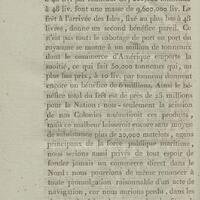 à 48 liv. font une masse de 9,600,000 liv. Le
frêt à l'arrivée des Isles, fixé au plus bas à 48
livres, donne un second bénéfice pareil. Ce
n'est pas tout le cabotage de port en port du
royaume se monte à un million de tonneaux
dont le commerce d'Amérique emporte la
moitié, ce qui fait 50,000 tonneaux qui, au
plus bas prix, à 10 liv. par tonneau donnent
encore un bénéfice de 6 millions. Ainsi le bé-
néfice total du frêt est de près de 25 millions
pour la Nation : non-seulement la scission
de nos Colonies anéantiroit ces produits,
mais ce malheur laisseroit encore sans moyens
de subsistance plus de 20,000 matelots, agens
principaux de la force publique maritime ;
nous serions aussi privés de tout espoir de
fonder jamais un commerce direct dans le
Nord : nous pourrions de même renoncer à
toute promulgation raisonnable d'un acte de
navigation, car nous aurions perdu, dans le